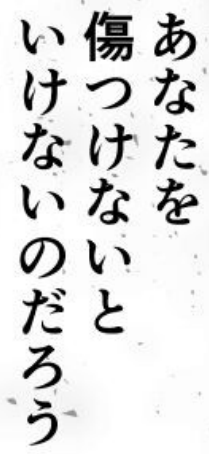 あなたを
傷つけないと
いけないのだろう